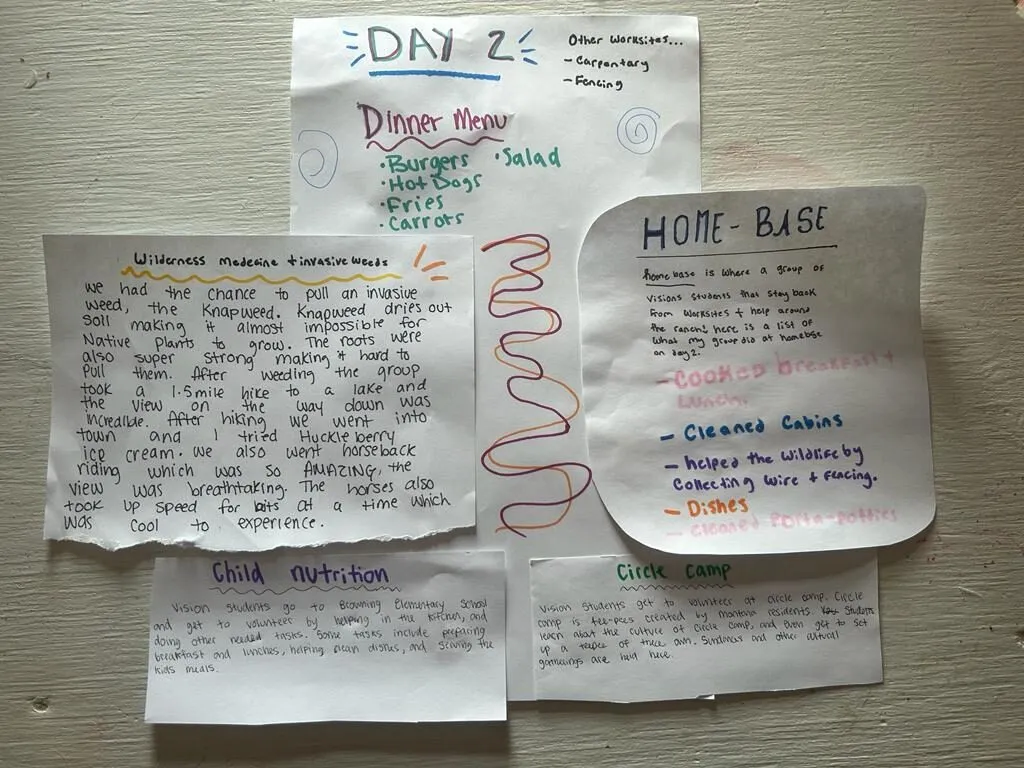 DAY 2
Other Worksites...
- Carpentary
- Fencing
Dinner Menu
• Burgers • Salad
• Hot Dogs
• Fries
• Carrots
Wilderness medecine + invasive weeds
we had the chance to pull an invasive
weed, the Knapweed. Knapweed dries out
soil making it almost impossible for
Native plants to grow. The roots were
also super strong making it hard to
pull them. After weeding the group
took a 1.5 mile hike to a lake and
the view on the way down was
incredible. After hiking we went into
town and I tried Huckleberry
ice cream. we also went horseback
riding which was so AMAZING, the
view was breathtaking. The horses also
took up speed for bits at a time which
was cool to experience.
HOME-BASE
home base is where a group of
Visions students that stay back
from worksites + help around
the ranch! here is a list of
what my group did at homebase
on day 2.
- Cooked breakfast +
Lunch.
- Cleaned Cabins
- helped the wildlife by
Collecting wire + fencing.
- Dishes
- cleaned Porta-potties
Child nutrition
Vision students go to Browning Elementary School
and get to volunteer by helping in the kitchen, and
doing other needed tasks. Some tasks include preparing
breakfast and lunches, helping clean dishes, and serving the
kids meals.
Circle camp
Vision students get to volunteer at circle camp. Circle
camp is tee-pees created by montana residents. Students
learn about the culture of circle camp, and even get to set
up a teepee of there own. Sundances and other cultural
gatherings are held here.